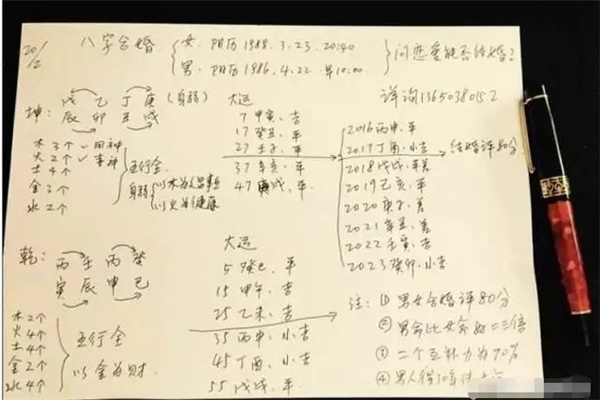 20/12
八字合婚
女. 阳历1988.3.23.20:40
男. 阳历1986.4.22.早10:00
问恋爱能否结婚?
详询13650380152
坤: 戊 乙 丁 庚 (身弱)
辰 卯 丑 戌
木 3个 ✓ 用神
火 2个 ✓ 喜神
土 4个
金 3个
水 2个
五行全
身弱
以木为
以火为健康
大运
7 甲寅. 吉
17 癸丑. 平
27 壬子. 平
37 辛亥. 平
47 庚戌. 平
2016 丙申. 平
2017 丁酉. 小吉
2018 戊戌. 平
2019 乙亥. 平
2020 庚子. 差
2021 辛丑. 平
2022 壬寅. 吉
2023 癸卯. 小吉
结婚评80分
乾: 丙 壬 丙 癸
寅 辰 申 巳
木 2个
火 4个
土 4个
金 2个
水 4个
五行全
以金为财.
大运
5 癸巳. 平
15 甲午. 吉
25 乙未. 吉
35 丙申. 小吉
45 丁酉. 小吉
55 戊戌. 平
注: ① 男女合婚评80分
② 男命比女命好二三倍
③ 二个互补力为90%
④ 男人得